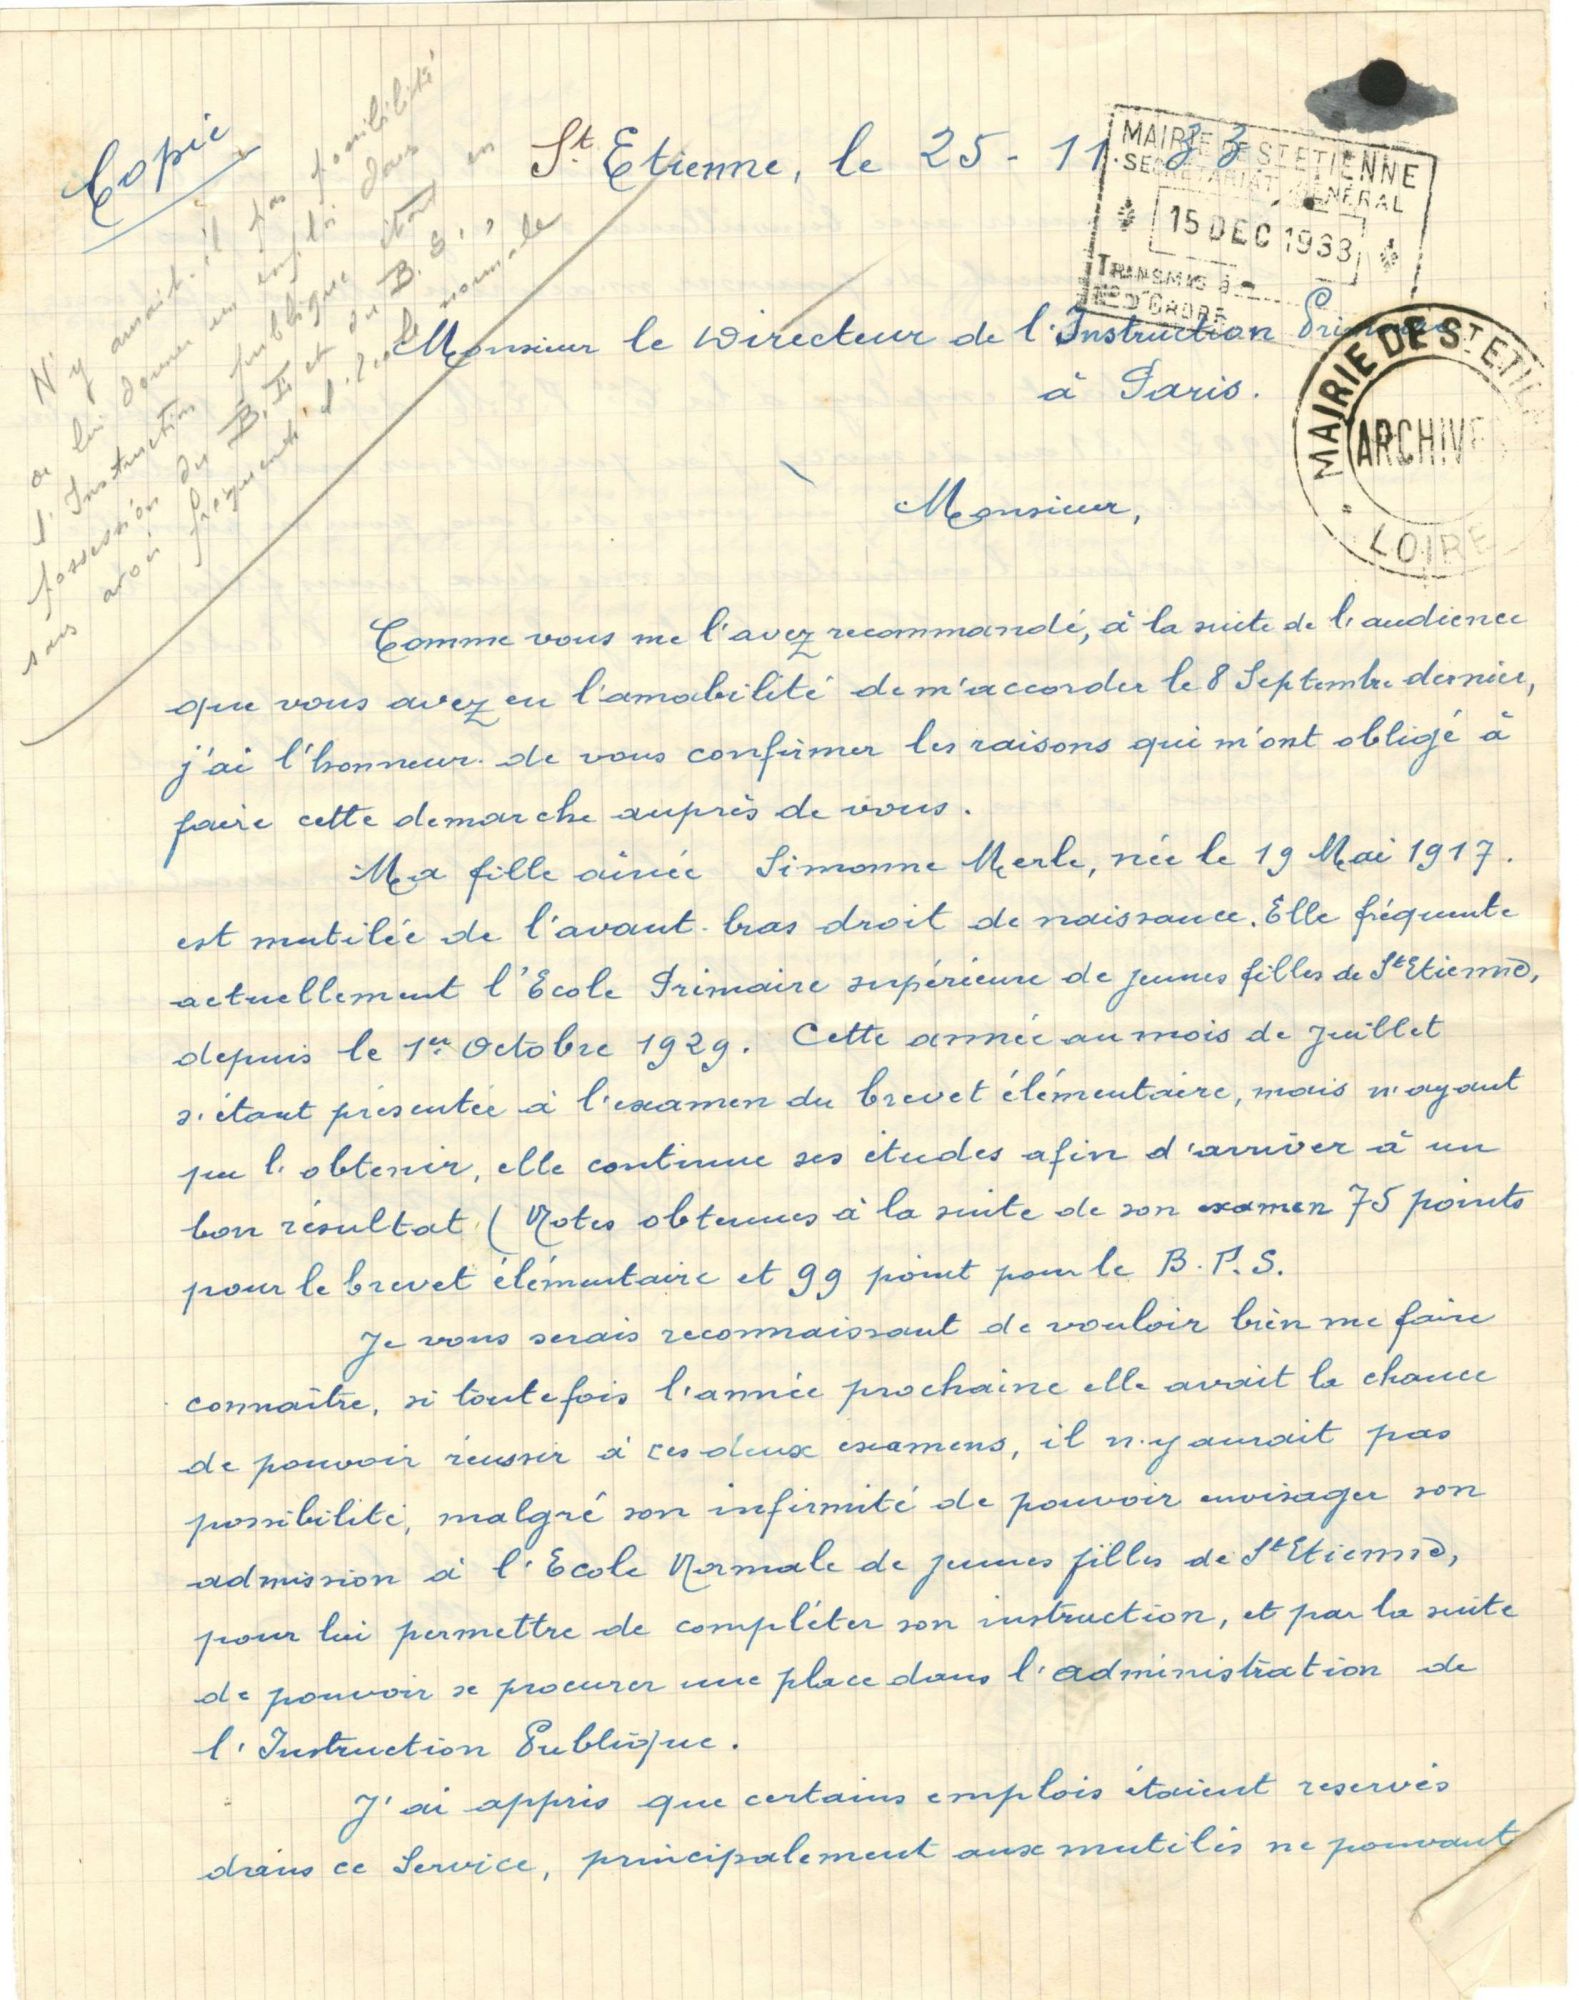 Copie
N'y aurait-il pas possibilité
de lui donner un emploi dans
l'Instruction publique étant en
possession du B.E et du B.S.,
sans avoir fréquenté l'école normale
St Etienne, le 25-11 33
MAIRIE DE ST ETIENNE
SECRÉTARIAT GÉNÉRAL
15 DEC 1933
TRANSMIS à
No D'ORDRE
Monsieur le Directeur de l'Instruction Primaire
à Paris.
MAIRIE DE ST ETIENNE
ARCHIVES
LOIRE
Monsieur,
Comme vous me l'avez recommandé, à la suite de l'audience
que vous avez eu l'amabilité de m'accorder le 8 Septembre dernier,
j'ai l'honneur de vous confirmer les raisons qui m'ont obligé à
faire cette demarche auprès de vous.
Ma fille ainée Simonne Merle, née le 19 Mai 1917.
est mutilée de l'avant-bras droit de naissance. Elle fréquente
actuellement l'Ecole Primaire supérieure de jeunes filles de St Etienne,
depuis le 1er Octobre 1929. Cette année au mois de Juillet
s'étant présentée à l'examen du brevet élémentaire, mais n'ayant
pu l'obtenir, elle continue ses études afin d'arriver à un
bon résultat (Notes obtenues à la suite de son examen 75 points
pour le brevet élémentaire et 99 point pour le B.P.S.
Je vous serais reconnaissant de vouloir bien me faire
connaître, si toutefois l'année prochaine elle avait la chance
de pouvoir réussir à ces deux examens, il n'y aurait pas
possibilité, malgré son infirmité de pouvoir envisager son
admission à l'Ecole Normale de jeunes filles de St Etienne,
pour lui permettre de compléter son instruction, et par la suite
de pouvoir se procurer une place dans l'administration de
l'Instruction Publique.
J'ai appris que certains emplois étaient reservés
dans ce Service, principalement aux mutilés ne pouvant